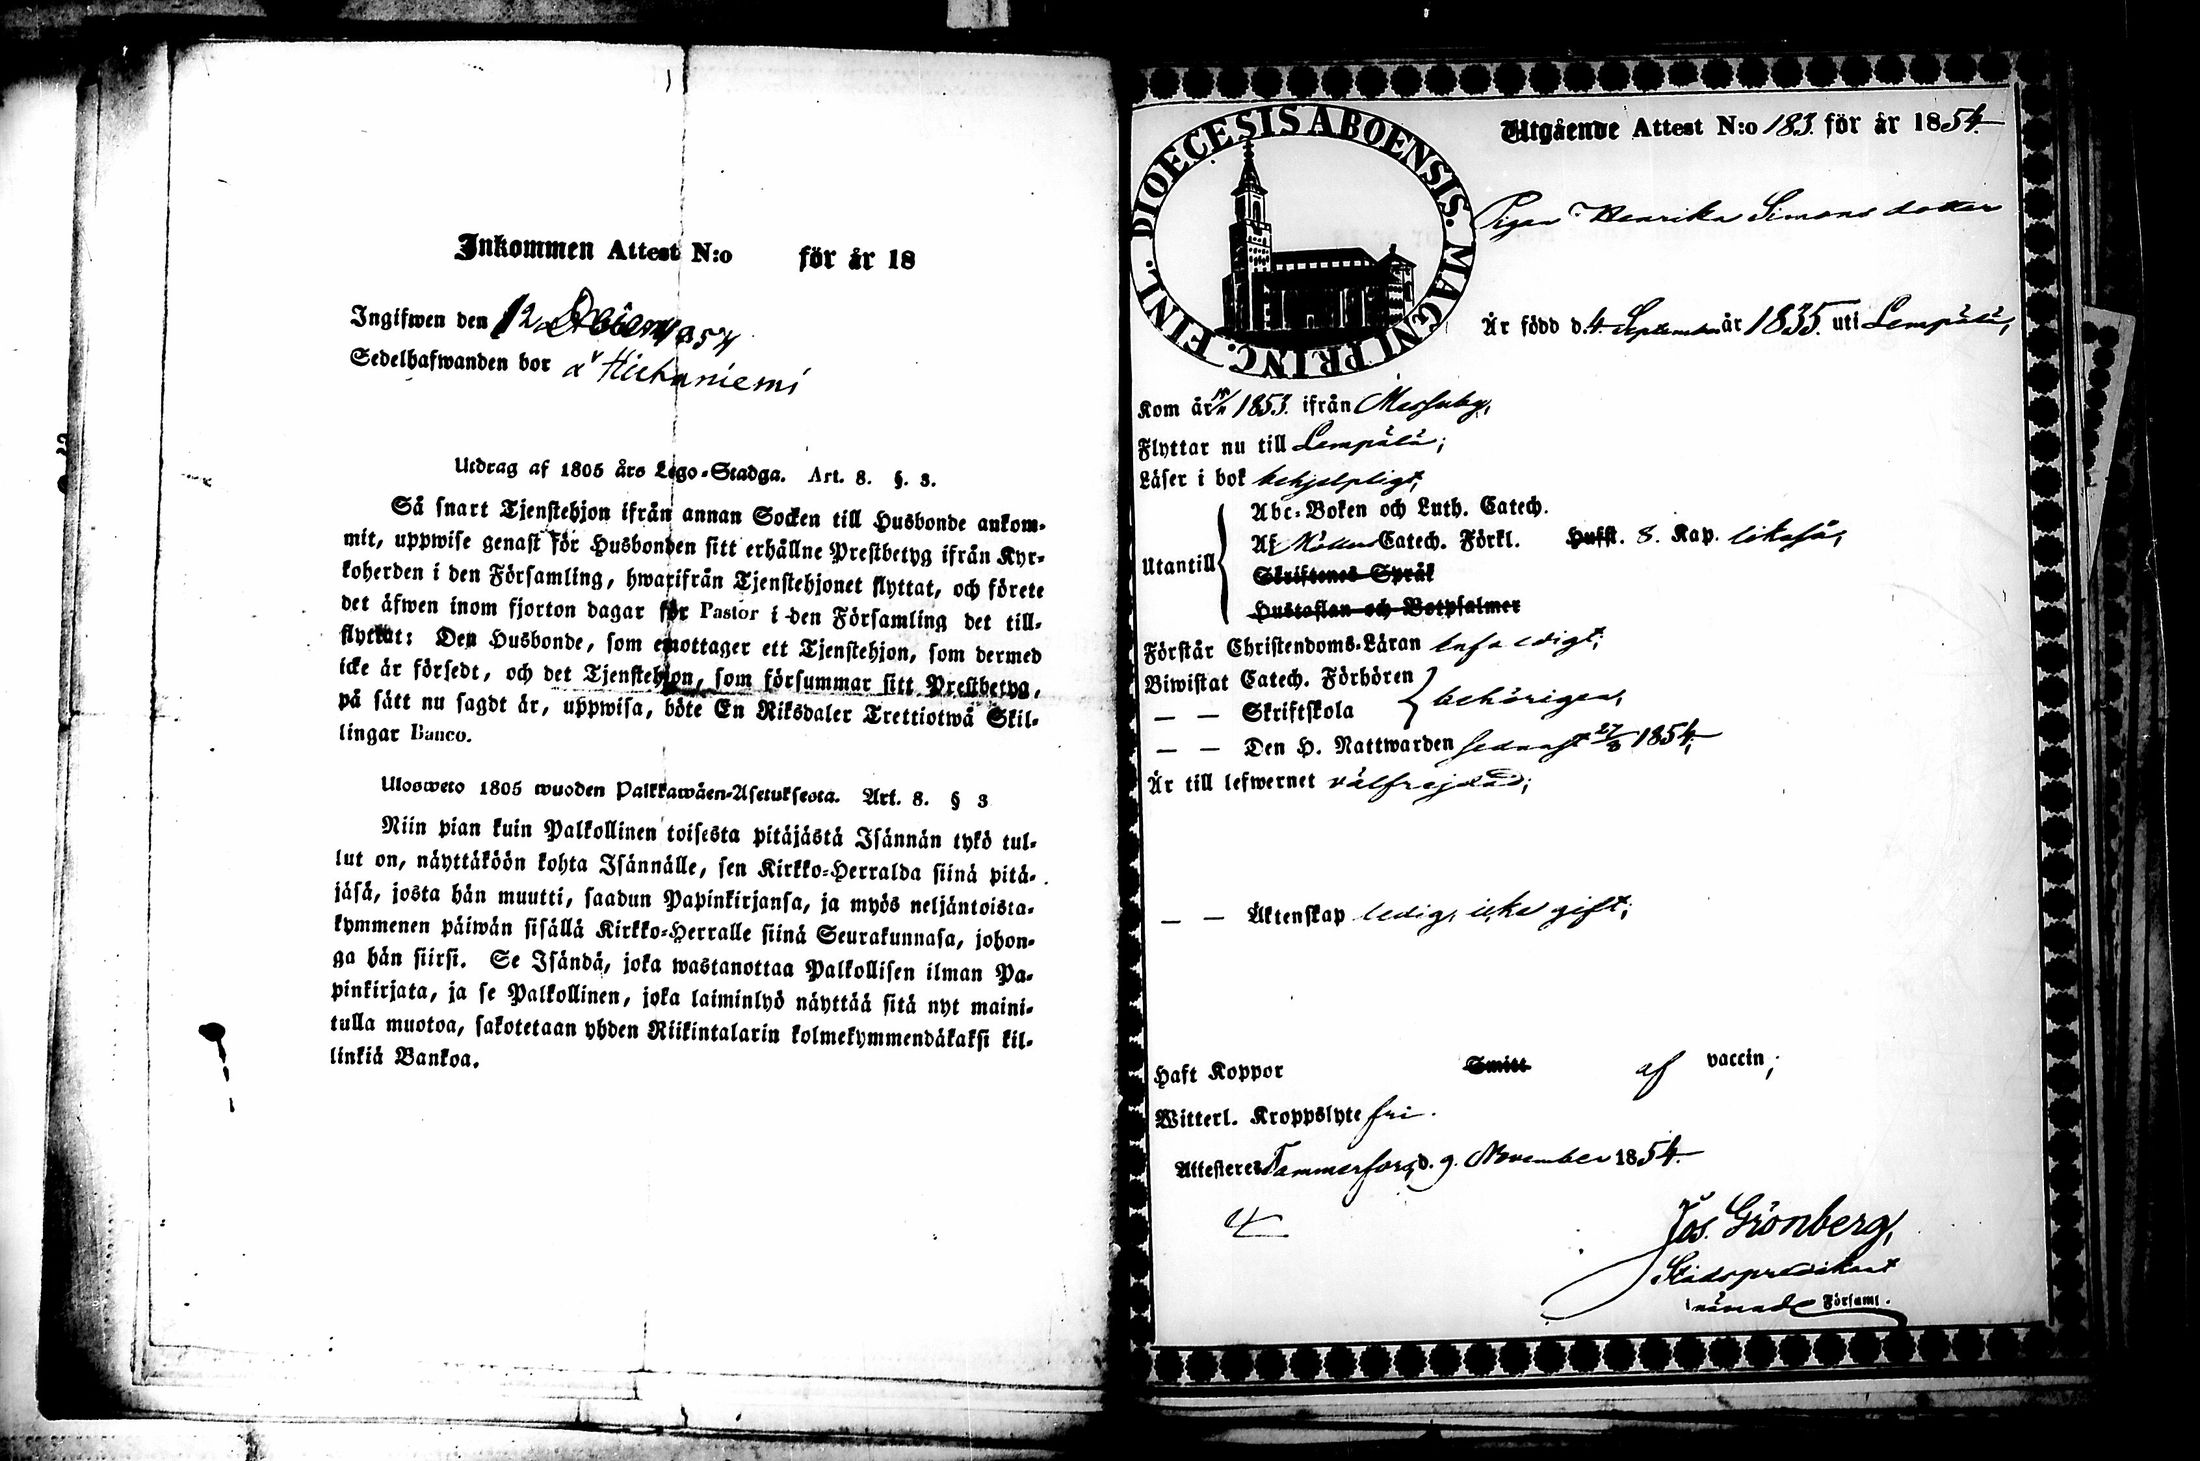 Inkommen Attest N:o för år 18
Ingifwen den 12 854
Sedelhafwanden bor å Hiehaniemi
Utdrag af 1805 års Lego-Stadga. Art. 8. §. 3.
Så snart Tjenstehjon ifrån annan Socken till Husbonde ankom-
mit, uppwise genast för Husbonden sitt erhållne Prestbetyg ifrån Kyr-
koherden i den Församling, hwarifrån Tjenstehjonet flyttat, och förete
det äfwen inom fjorton dagar för Pastor i den Församling det till-
flyttat: Den Husbonde, som emottager ett Tjenstehjon, som dermed
icke är försedt, och det Tjenstehjon, som försummar sitt Prestbetyg,
på sätt nu sagdt är, uppwisa, böte En Riksdaler Trettiotwå Skil-
lingar Banco.
Ulosweto 1805 wuoden Palkkawäen-Asetuksesta. Art. 8. § 3
Niin pian kuin Palkollinen toisesta pitäjästä Isännän tykö tul-
lut on, näyttäköön kohta Isännälle, sen Kirkko-Herralda siinä pitä-
jäsä, josta hän muutti, saadun Papinkirjansa, ja myös neljäntoista-
kymmenen päiwän sisällä Kirkko-Herralle siinä Seurakunnasa, johon-
ga hän siirsi. Se Isändä, joka wastanottaa Palkollisen ilman Pa-
pinkirjata, ja se Palkollinen, joka laiminlyö näyttää sitä nyt maini-
tulla muotoa, sakotetaan yhden Riikintalarin kolmekymmendäkaksi kil-
linkiä Bankoa.
DIOECESIS ABOENSIS. MAGNI PRINC. FINL.
Utgående Attest N:o 183. för år 1854
Pigan Henrika Simonsdotter
Är född d. 4 September år 1835. uti Lempälä,
Kom år 1853. ifrån Messuby,
Flyttar nu till Lempälä;
Läser i bok behjelpligt,
Utantill
Abc-Boken och Luth. Catech.
Af Möllers Catech. Förkl. Hufst. 8. Kap. likaså,
Skriftenes Språk
Hustaflan och Botpsalmer
Förstår Christendoms-Läran enfaldigt;
Biwistat Catech. Förhören
— — Skriftskola behörigen,
— — Den H. Nattwarden sednast 27/8 1854,
Är till lefwernet välfrejdad;
— — Äktenskap ledig, icke gift;
Haft Koppor Smitt af vaccin;
Witterl. Kroppslyte fri.
Attesteres Tammerfors, d. 9. November 1854.
Jos. Grönberg,
Stadspredikant
i nämnde Församl.